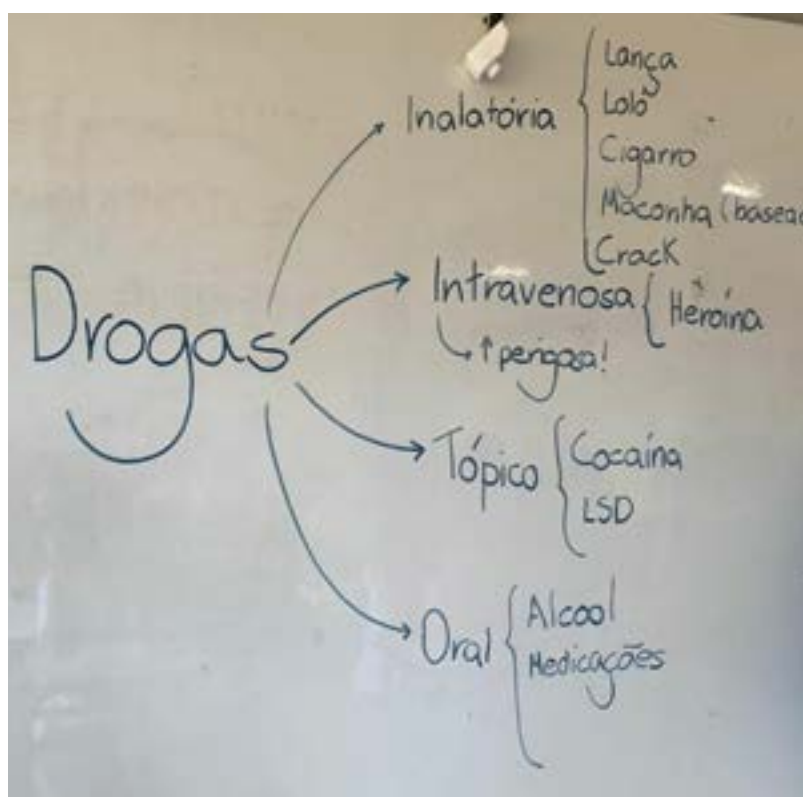 Drogas
Inalatória
Lança
Loló
Cigarro
Maconha (basead
Crack
Intravenosa
↑ perigosa!
Heroína
Tópico
Cocaína
LSD
Oral
Alcool
Medicações